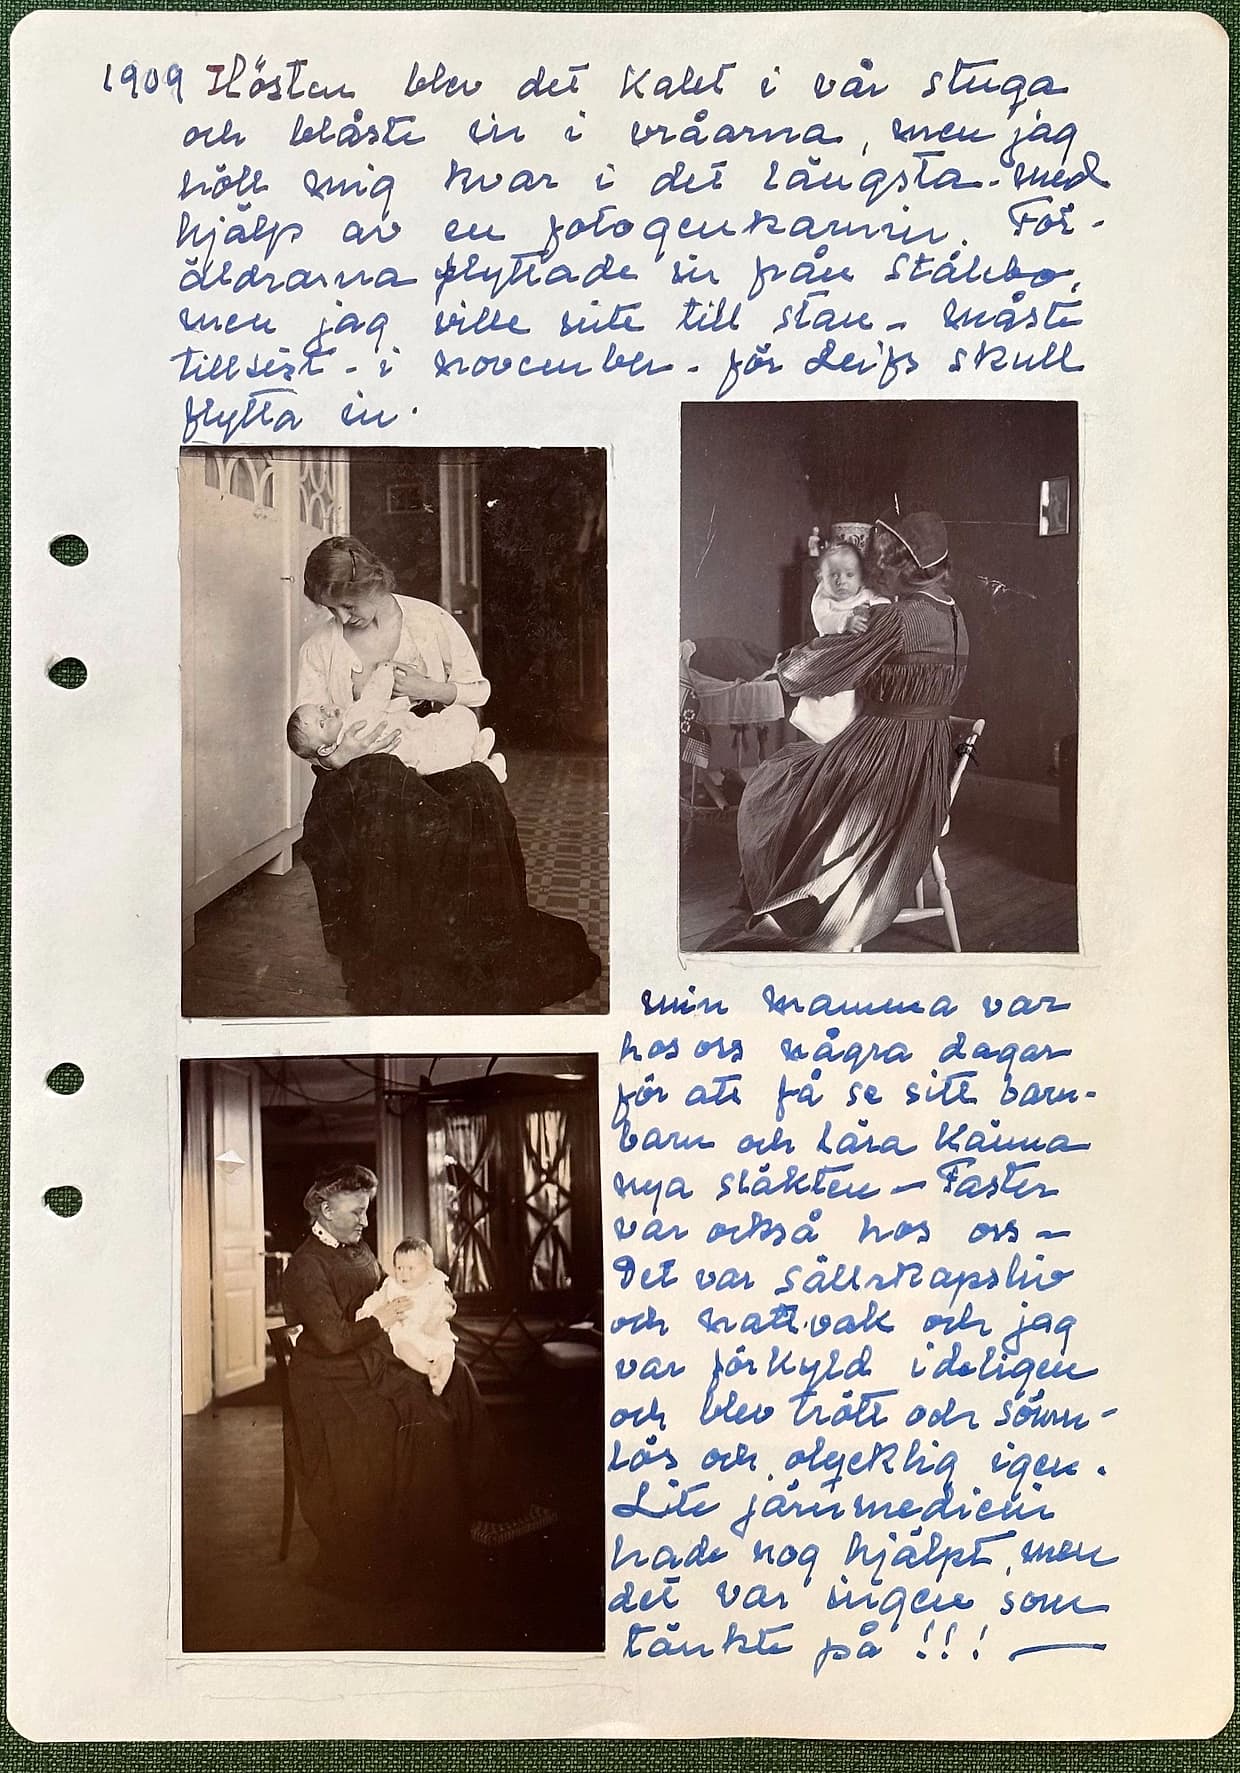 1909 Hösten blev det kallt i vår stuga
och blåste in i vråarna, men jag
höll mig kvar i det längsta - med
hjälp av en fotogenkamin. För-
äldrarna flyttade in från Stålbo,
men jag ville inte till stan - måste
tillsist - i november - för Leifs skull
flytta in.
min mamma var
hos oss några dagar
för att få se sitt barn-
barn och lära känna
nya släkten - Faster
var också hos oss -
Det var sällskapsliv
och nattvak och jag
var förkyld ideligen
och blev trött och sömn-
lös och olycklig igen.
Lite järnmedicin
hade nog hjälpt, men
det var ingen som
tänkte på !!! —